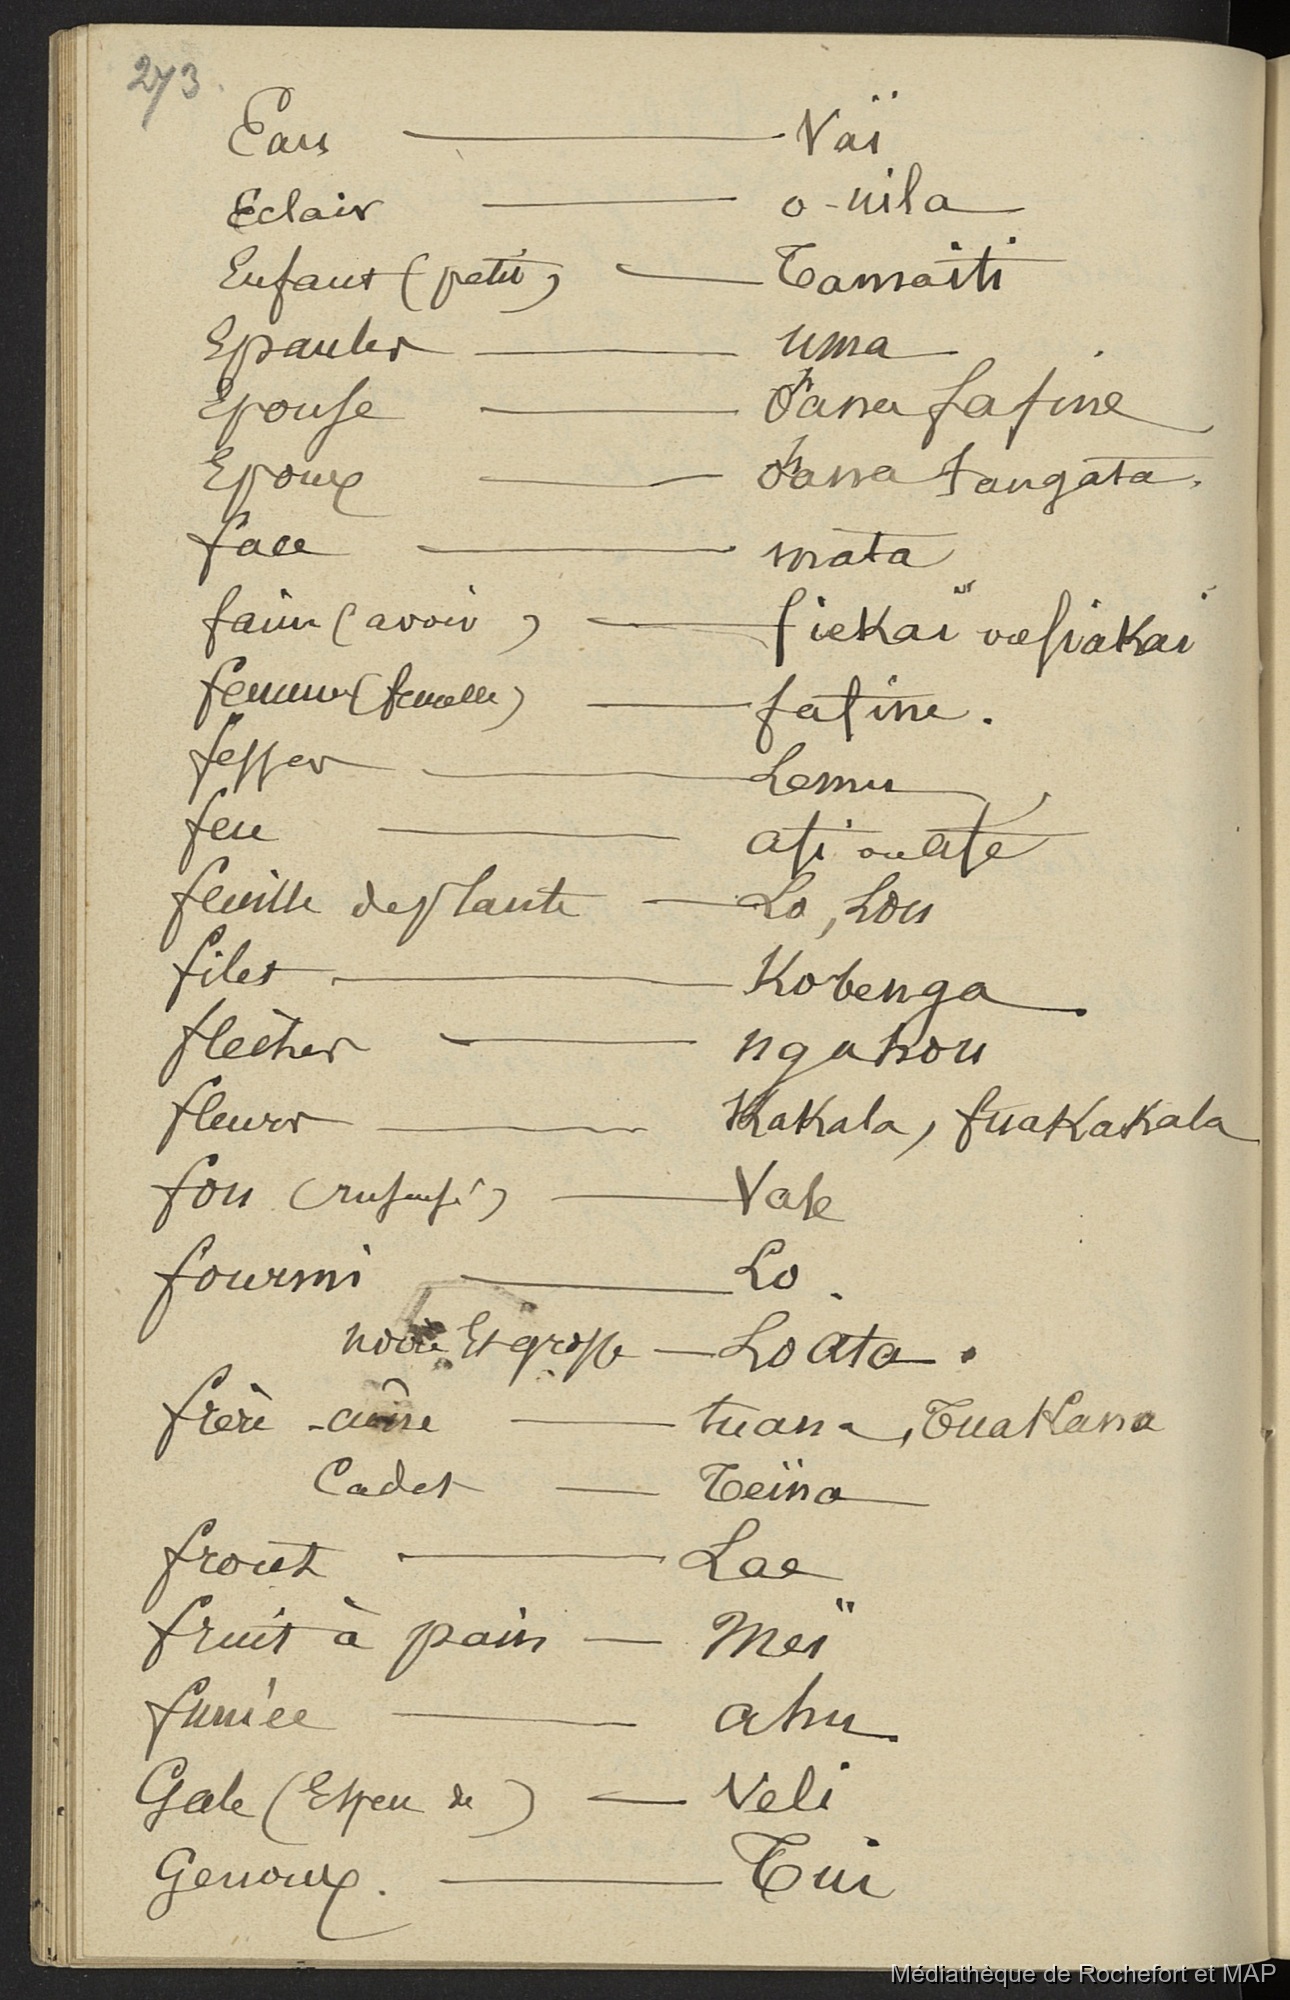 273.
Eau — Vaï
Eclair — o-uila
Enfant (petit) — Tamaiti
Epaules — uma
Epouse — ohana fafine
Epoux — ohana tangata.
face — mata
faim (avoir) — fiekaï ou fiakai
femme (femelle) — fafine.
fesses — Lemu
feu — afi ou afe
feuille de plante — Lo, Lou
filet — Kobenga
flèches — ngahou
fleurs — Kakala, fuakakala
fou (insensé) — Vale
fourmi — Lo.
noire et grosse — Lo ata.
frère - aîné — tuana, Tuakana
Cadet — Teïna
front — Lae
fruit à pain — Meï
fumée — ahu
Gale (Espèce de) — Veli
Genoux. — Tui
Médiathèque de Rochefort et MAP